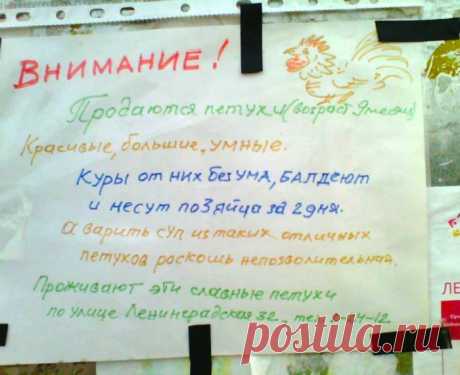 ВНИМАНИЕ!
Продаются петухи (возраст 9 месяц)
Красивые, большие, умные.
Куры от них без ума, балдеют
и несут по 3 яйца за 2 дня.
А варить суп из таких отличных
петухов роскошь непозволительная.
Проживают эти славные петухи
по улице Ленинградская 32, те 4-12
ЛЕ
postila.ru